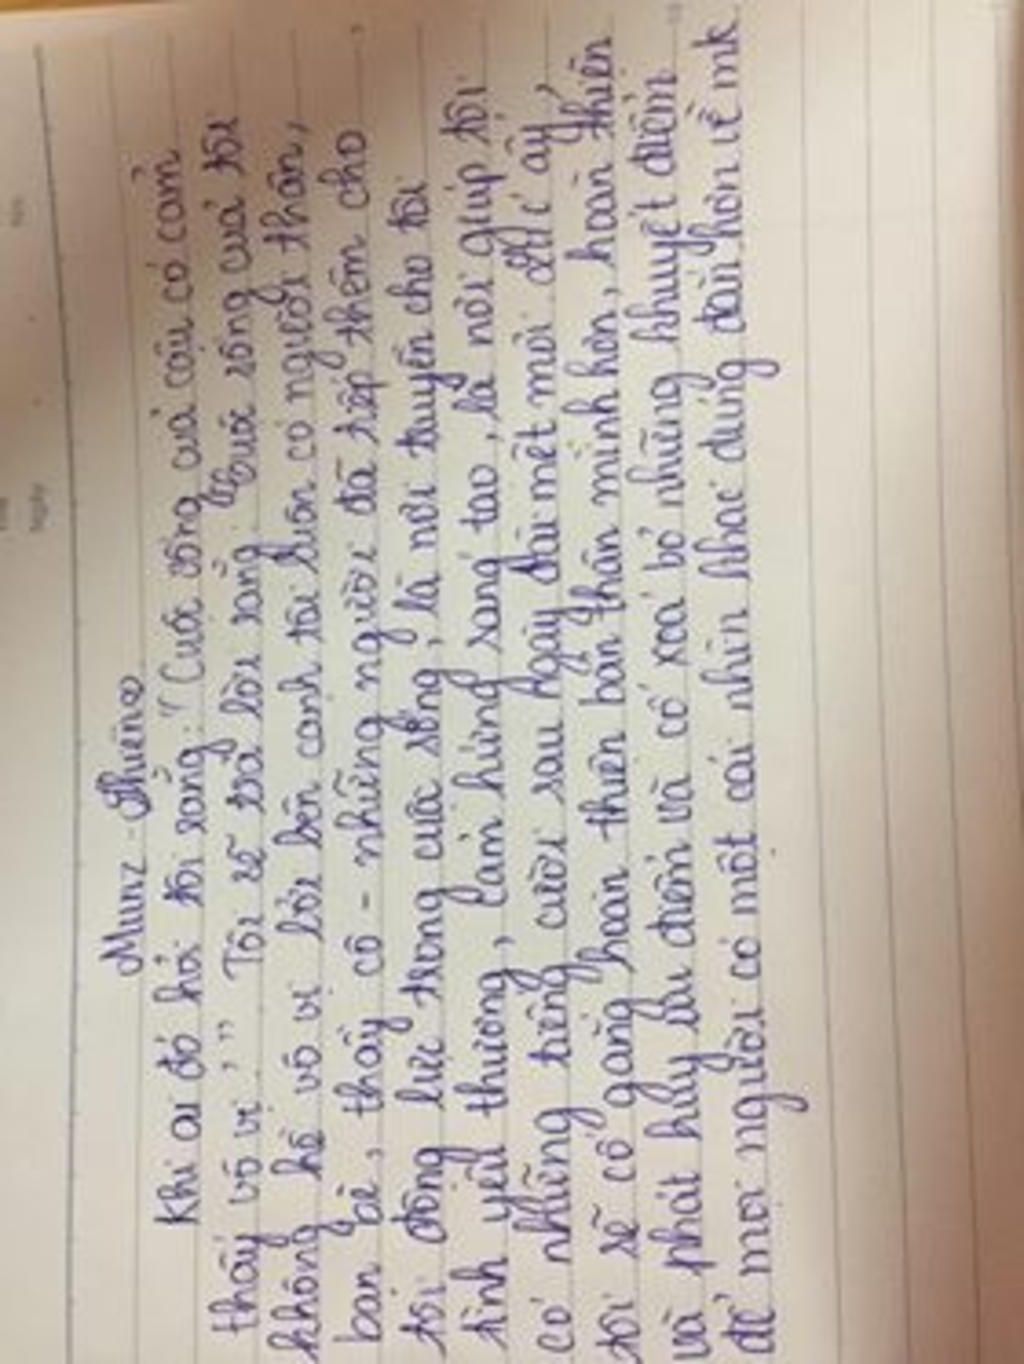 Munz - Thiên
Khi ai đó hỏi tôi rằng: "Cuộc sống của cậu có cảm
thấy vô vị." Tôi sẽ trả lời rằng cuộc sống của tôi
không hề vô vị bởi bên cạnh tôi luôn có người thân,
bạn bè, thầy cô - những người đã tiếp thêm cho
tôi động lực trong cuộc sống, là nơi truyền cho tôi
tình yêu thương, cảm hứng sáng tạo, là nơi giúp tôi
có những tiếng cười sau ngày dài mệt mỏi ấy,
tôi sẽ cố gắng hoàn thiện bản thân mình hơn, hoàn thiện
và phát huy ưu điểm và cố xoá bỏ những khuyết điểm
để mọi người có một cái nhìn khác đúng đắn hơn về mk